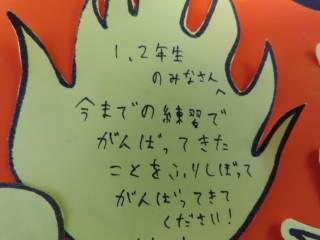 1、2年生
のみなさんへ
今までの練習で
がんばってきた
ことをふりしぼって
がんばってきて
ください!